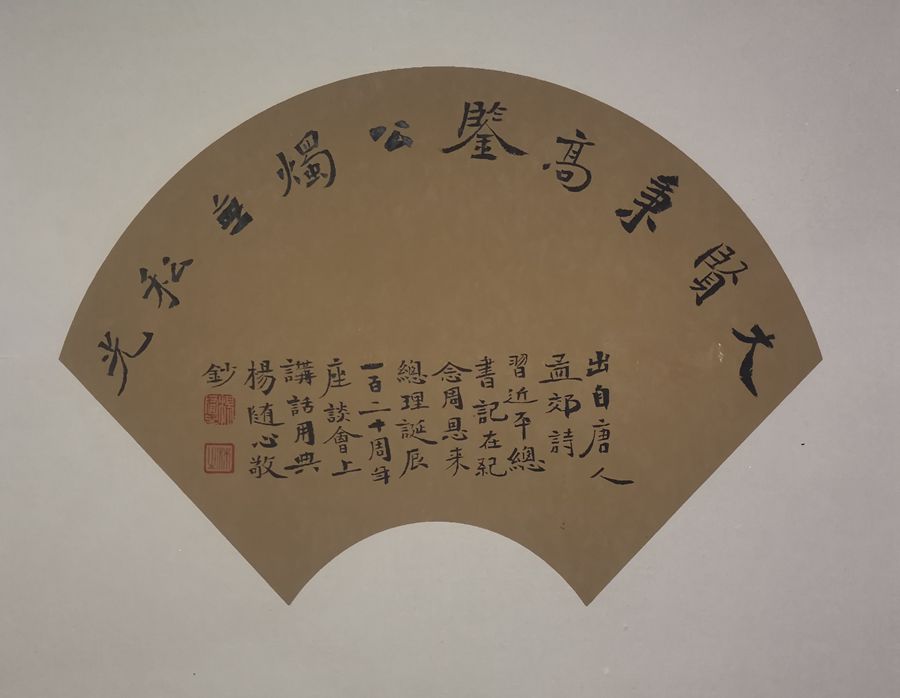 大賢秉高鑒公燭無私光
出自唐人
孟郊詩
習近平總
書記在紀
念周恩来
總理誕辰
一百二十周年
座談會上
講話用典
楊随心敬
鈔